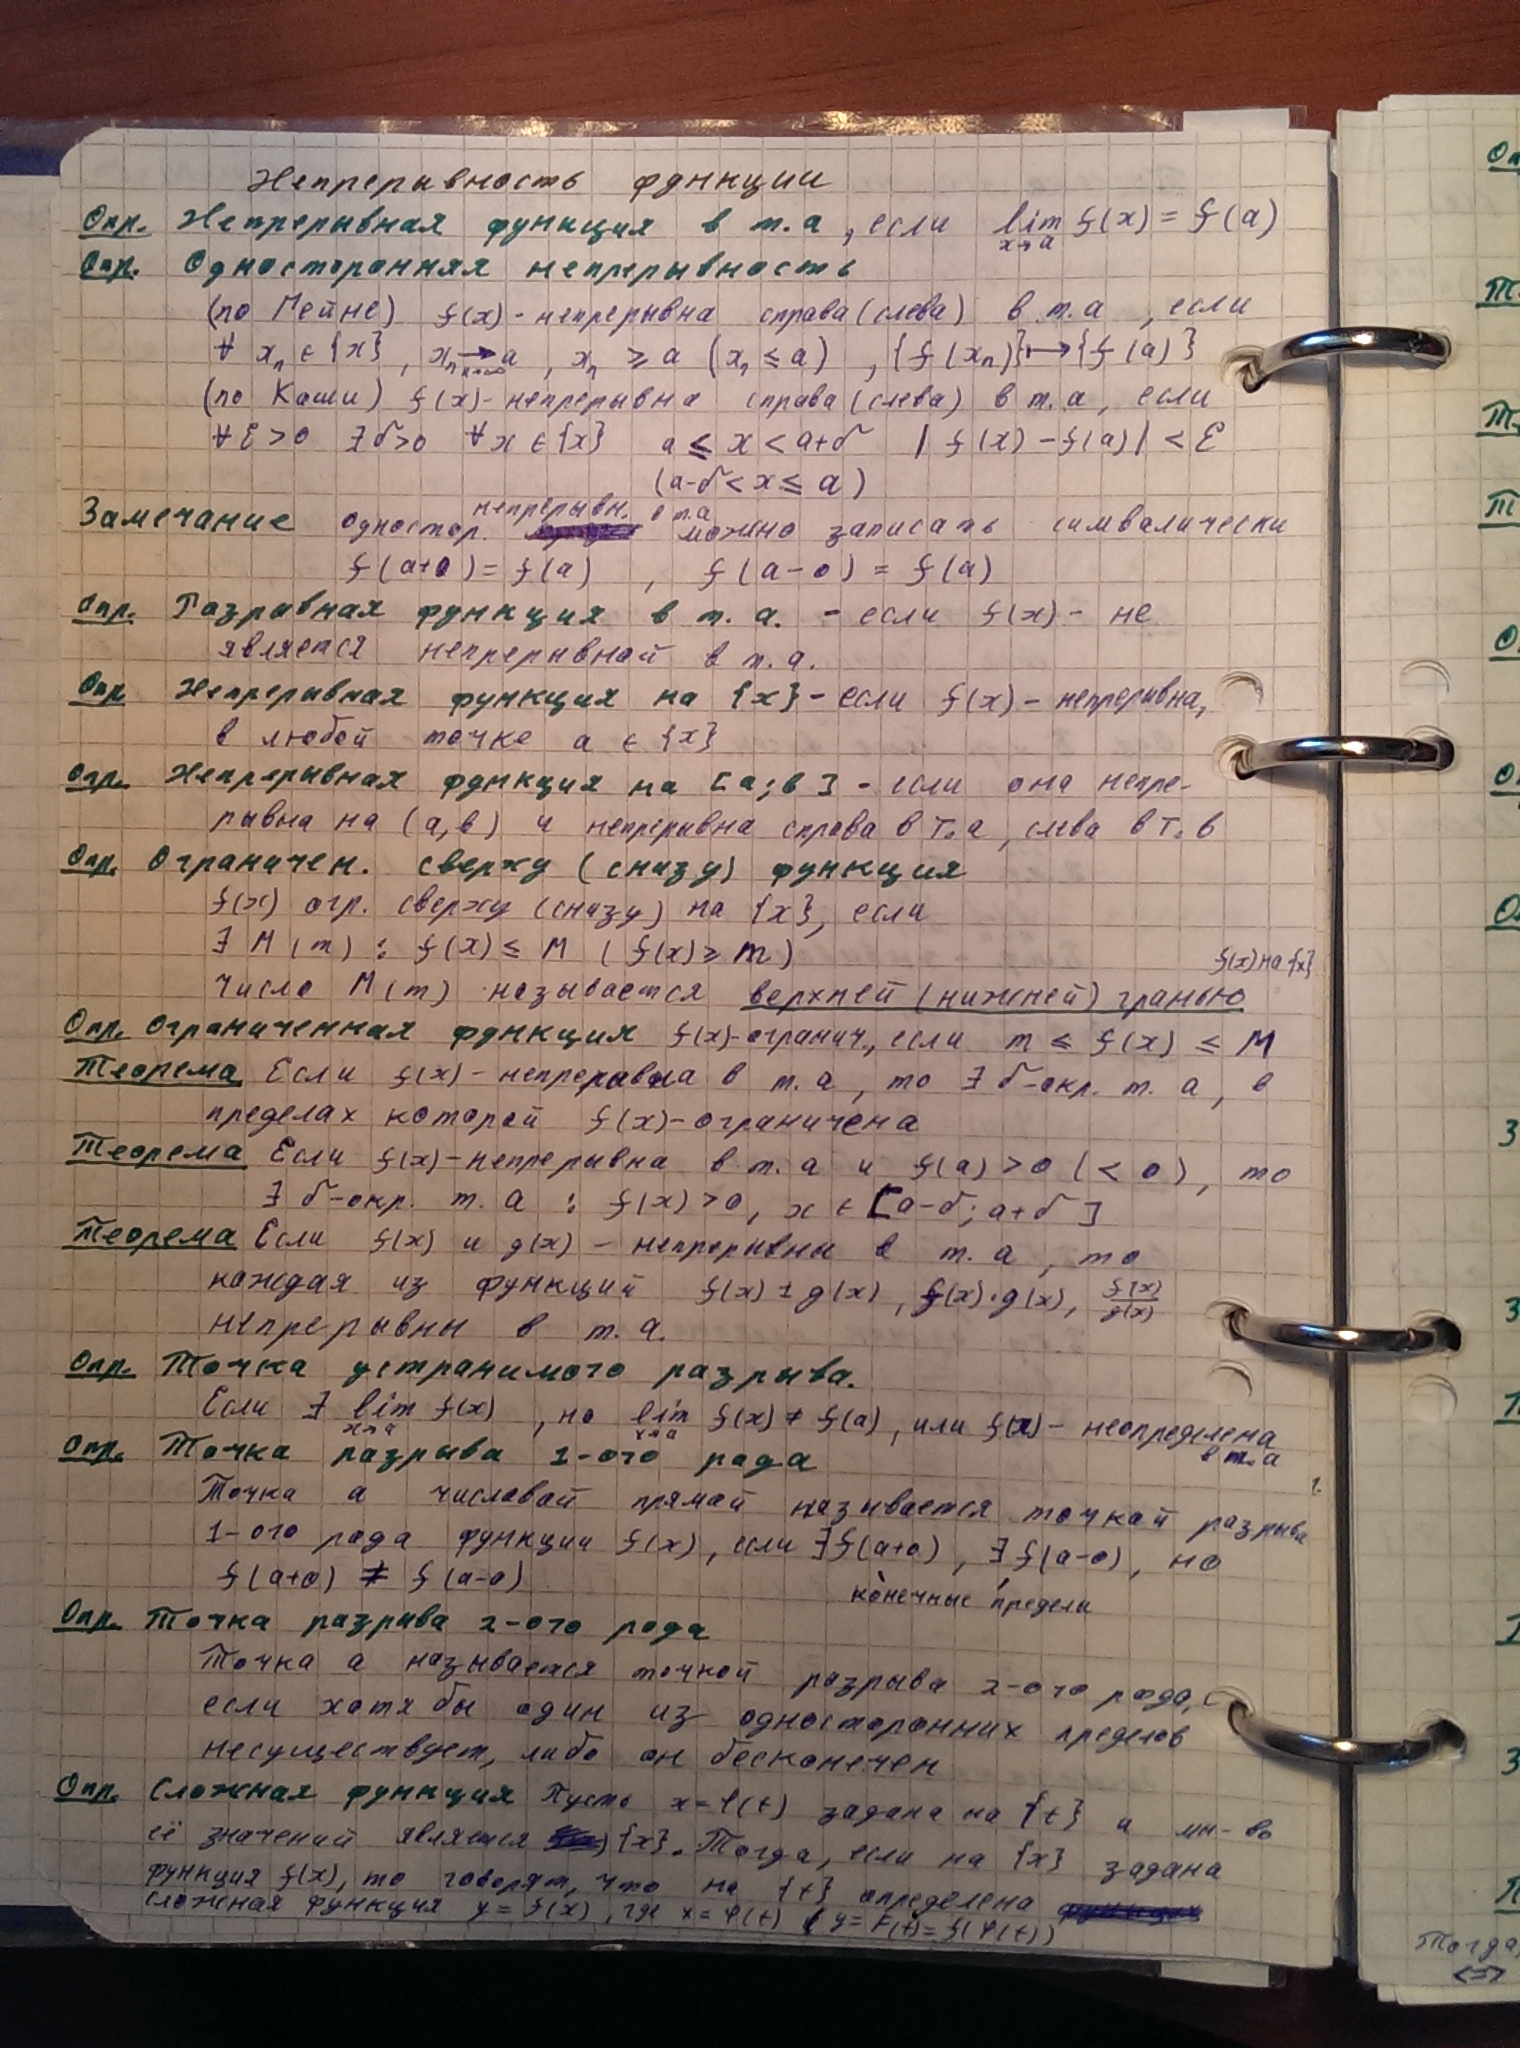 Непрерывность функции
Опр. Непрерывная функция в т. а, если lim f(x) = f(a)
x→a
Опр. Односторонняя непрерывность
(по Гейне) f(x) - непрерывна справа (слева) в т. а, если
∀ xₙ ∈ {x}, xₙ → a, xₙ ≥ a (xₙ ≤ a), {f(xₙ)} ↦ {f(a)}
n→∞
(по Коши) f(x) - непрерывна справа (слева) в т. а, если
∀ε>0 ∃δ>0 ∀x ∈ {x} a ≤ x < a+δ |f(x) - f(a)| < ε
(a-δ < x ≤ a)
Замечание одностор. непрерывн. в т. а можно записать симвалически
f(a+0) = f(a), f(a-0) = f(a)
Опр. Разравная функция в т. а. - если f(x) - не
является непрерывной в т. а.
Опр. Непрерывная функция на {x} - если f(x) - непрерывна,
в любой точке a ∈ {x}
Опр. Непрерывная функция на [a; b] - если она непре-
рывна на (a, b) и непрерывна справа в т. a, слева в т. b
Опр. Ограничен. сверху (снизу) функция
f(x) огр. сверху (снизу) на {x}, если
∃ M (m) : f(x) ≤ M (f(x) ≥ m)
число M (m) называется верхней (нижней) гранью f(x) на {x}
Опр. Ограниченная функция f(x) - огранич., если m ≤ f(x) ≤ M
Теорема Если f(x) - непрерывна в т. а, то ∃ δ-окр. т. а, в
пределах которой f(x) - ограничена
Теорема Если f(x) - непрерывна в т. а и f(a) > 0 (< 0), то
∃ δ-окр. т. а : f(x) > 0, x ∈ [a-δ; a+δ]
Теорема Если f(x) и g(x) - непрерывны в т. а, то
каждая из функций f(x) ± g(x), f(x)·g(x), f(x)/g(x)
непрерывны в т. а.
Опр. Точка устранимого разрыва.
Если ∃ lim f(x), но lim f(x) ≠ f(a), или f(x) - неопределена
x→a x→a в т. а
Опр. Точка разрыва 1-ого рода
Точка а числовай прямай называется точкай разрыва
1-ого рода функции f(x), если ∃ f(a+0), ∃ f(a-0), но
f(a+0) ≠ f(a-0)
конечные пределы
Опр. Точка разрыва 2-ого рода
Точка а называется точкой разрыва 2-ого рода,
если хотя бы один из односторонних пределов
несуществует, либо он бесконечен
Опр. Сложная функция Пусть x = φ(t) задана на {t} и мн-во
её значений является {x}. Тогда, если на {x} задана
функция f(x), то говорят, что на {t} определена
сложная функция y = f(x), где x = φ(t) (y = F(t) = f(φ(t))
Тогда,
<=>